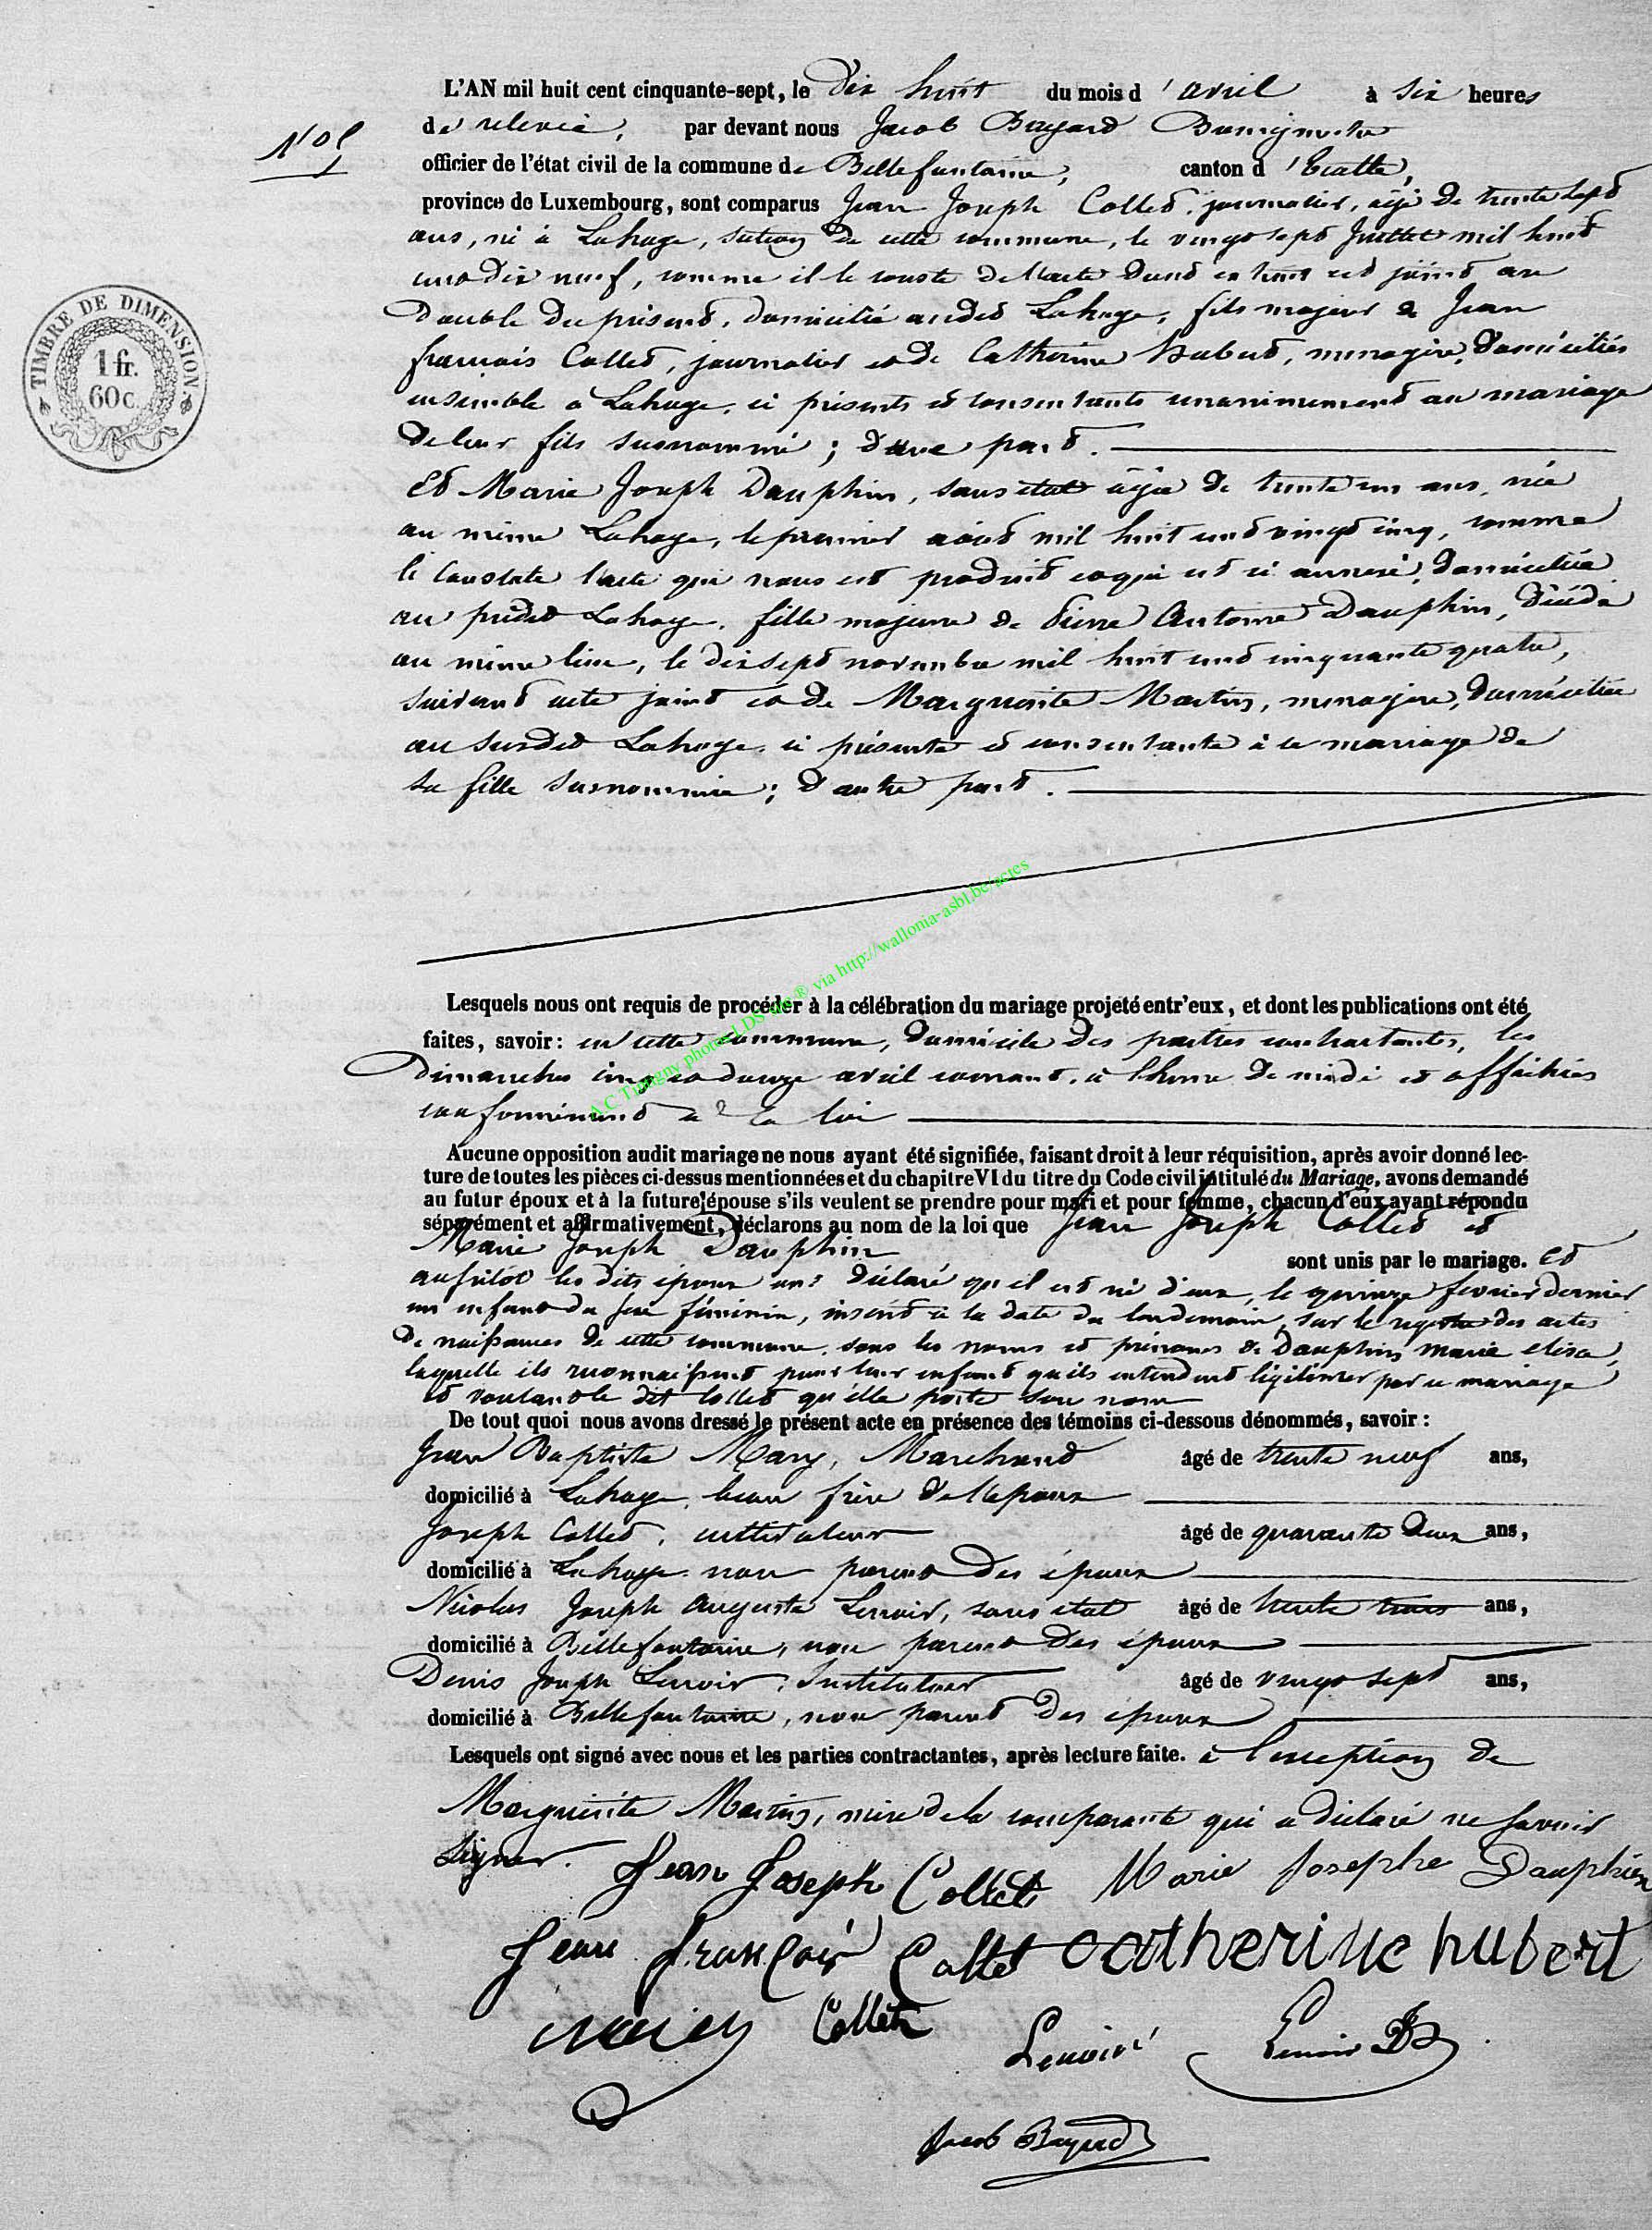 L'AN mil huit cent cinquante-sept, le dix huit du mois d'avril à six heures
de relevée, par devant nous Jacob Bayard Bourgmestre
officier de l'état civil de la commune de Bellefontaine, canton d'Etalle,
province de Luxembourg, sont comparus Jean Joseph Collet, journalier, âgé de trente sept
ans, né à Lahage, section de cette commune, le vingt sept Juillet mil huit
cent dix neuf, comme il le conste de l'acte dont extrait est joint au
double du présent, domicilié audit Lahage, fils majeur de Jean
françois Collet, journalier et de Catherine Hubert, menagère, domiciliés
ensemble à Lahage, ci présents et consentants unanimement au mariage
de leur fils susnommé ; d'une part.
Et Marie Joseph Dauphin, sans etat âgée de trente un ans, née
au même Lahage, le premier août mil huit cent vingt cinq, comme
le constate l'acte qui nous est produit et qui est ci annexé, domiciliée
au prédit Lahage, fille majeure de Pierre Antoine Dauphin, décédé
au même lieu, le dix sept novembre mil huit cent cinquante quatre,
suivant acte joint et de Marguerite Martin, menagère, domiciliée
au susdit Lahage, ci présente et consentante à ce mariage de
sa fille susnommée ; d'autre part.
A.C Tintigny photos LDS via http://wallonia-asbl.be/actes
N° 5
TIMBRE DE DIMENSION
1 fr.
60 c.
Lesquels nous ont requis de procéder à la célébration du mariage projeté entr'eux, et dont les publications ont été
faites, savoir : en cette commune, domicile des parties contractantes, les
Dimanches cinq et douze avril courant, à l'heure de midi et affichées
conformément à la loi
Aucune opposition audit mariage ne nous ayant été signifiée, faisant droit à leur réquisition, après avoir donné lec-
ture de toutes les pièces ci-dessus mentionnées et du chapitre VI du titre du Code civil intitulé du Mariage, avons demandé
au futur époux et à la future épouse s'ils veulent se prendre pour mari et pour femme, chacun d'eux ayant répondu
séparément et affirmativement, déclarons au nom de la loi que Jean Joseph Collet et
Marie Joseph Dauphin sont unis par le mariage. Et
aussitôt les dits époux ont déclaré qu'il est né d'eux, le quinze fevrier dernier
un enfant du sexe féminin, inscrit à la date du lendemain, sur le registre des actes
de naissances de cette commune, sous les noms et prénoms de Dauphin marie elisa,
laquelle ils reconnaissent pour leur enfant qu'ils entendent légitimer par ce mariage
et voulant le dit Collet qu'elle porte son nom
De tout quoi nous avons dressé le présent acte en présence des témoins ci-dessous dénommés, savoir :
Jean Baptiste Mary, Marchand âgé de trente neuf ans,
domicilié à Lahage, beau frère de l'époux
Joseph Collet, cultivateur âgé de quarante deux ans,
domicilié à Lahage non parent des époux
Nicolas Joseph Auguste Lenoir, sans etat âgé de trente trois ans,
domicilié à Bellefontaine, non parent des époux
Denis Joseph Lenoir, Instituteur âgé de vingt sept ans,
domicilié à Bellefontaine, non parent des époux
Lesquels ont signé avec nous et les parties contractantes, après lecture faite. à l'exception de
Marguerite Martin, mère de la comparante qui a déclaré ne savoir
Signer.
Jean Joseph Collet Marie Josephe Dauphin
Jean françois Collet Catherine hubert
Collet Lenoir Lenoir DJ
Jacob Bayard